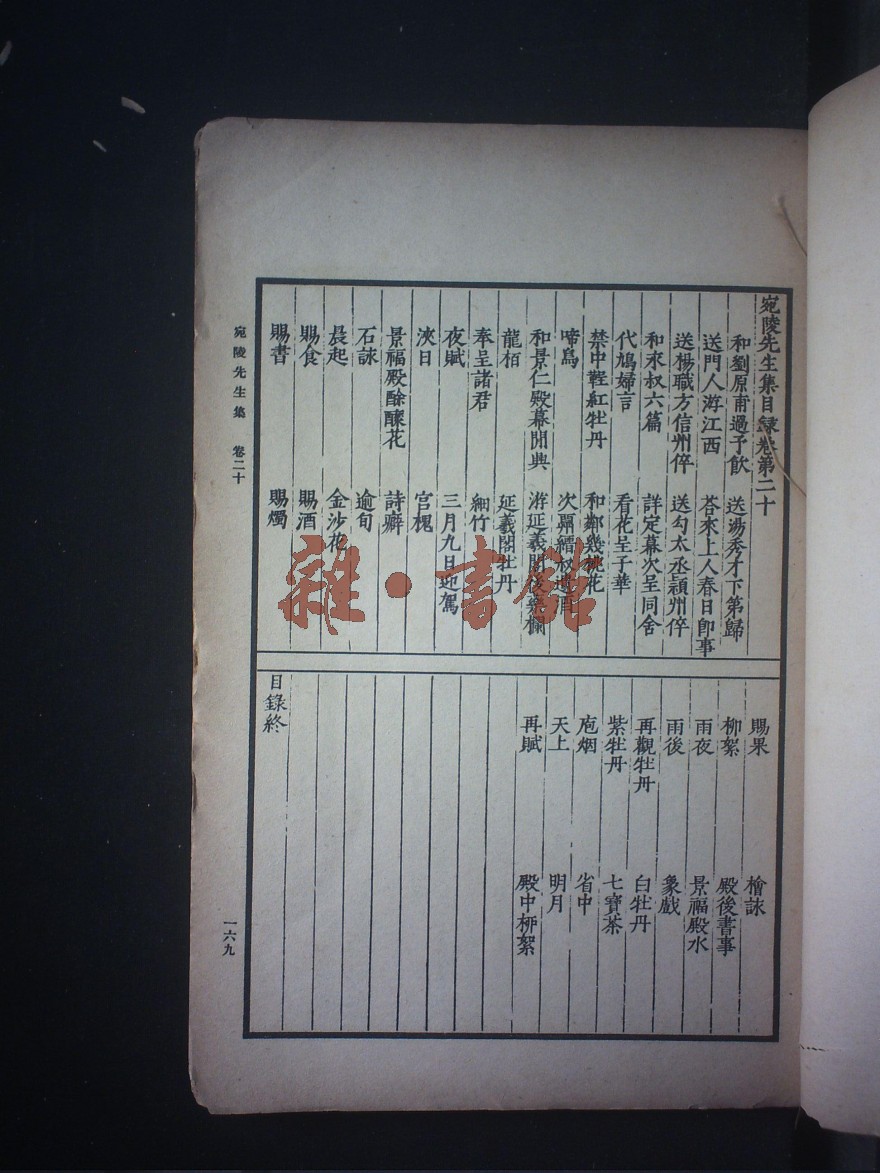 宛陵先生集目録卷第二十
和劉原甫過予飲 送湯秀才下第歸
送門人游江西 荅來上人春日即事
送楊職方信州倅 送勾太丞潁州倅
和來叔六篇 詳定幕次呈同舍
代鳩婦言 看花呈子華
禁中鞓紅牡丹 和鄰幾桃花
啼鳥
和景仁殿幕閒興 游延羲閣後藥欄
龍栢 延羲閣牡丹
奉呈諸君 細竹
夜賦 三月九日迎駕
浹日 宫槐
景福殿酴醿花 詩癖
石詠 逾旬
晨起 金沙花
賜食 賜酒
賜書 賜燭
賜果 檜詠
柳絮 殿後書事
雨夜 景福殿水
雨後 象戲
再觀牡丹 白牡丹
紫牡丹 七寶茶
庖烟 省中
天上 明月
再賦 殿中柳絮
目録終
宛陵先生集 卷二十
一六九
雜·書館